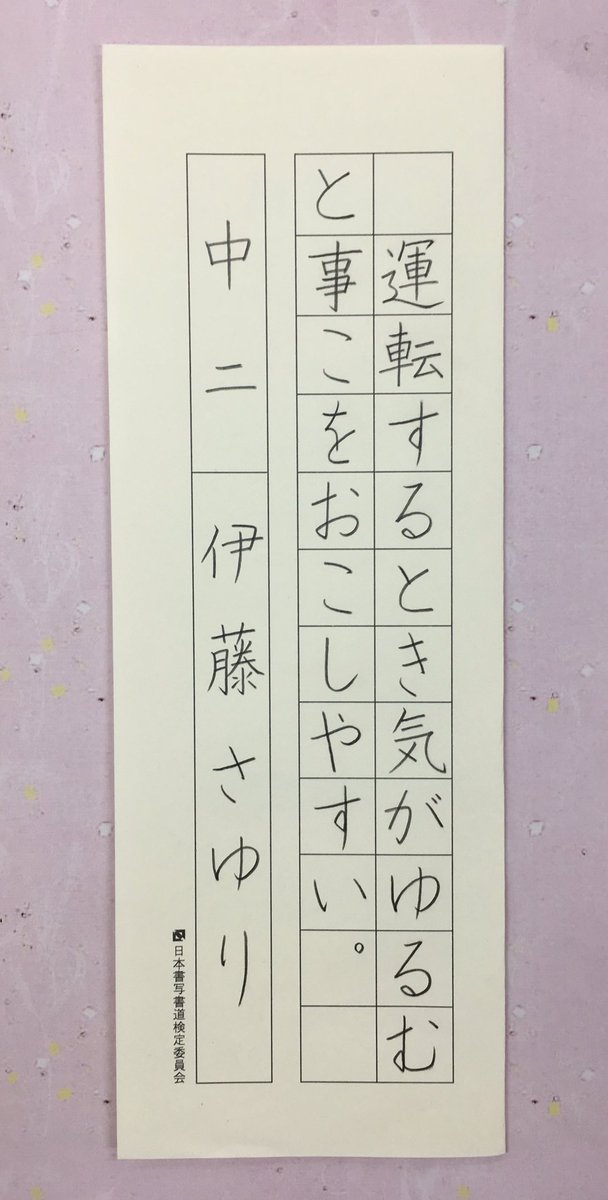 運転するとき気がゆるむ
と事こをおこしやすい。
中二 伊藤さゆり
日本書写書道検定委員会